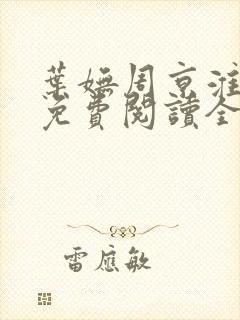 葉嫵周京淮
免費閱讀全
雷應敏